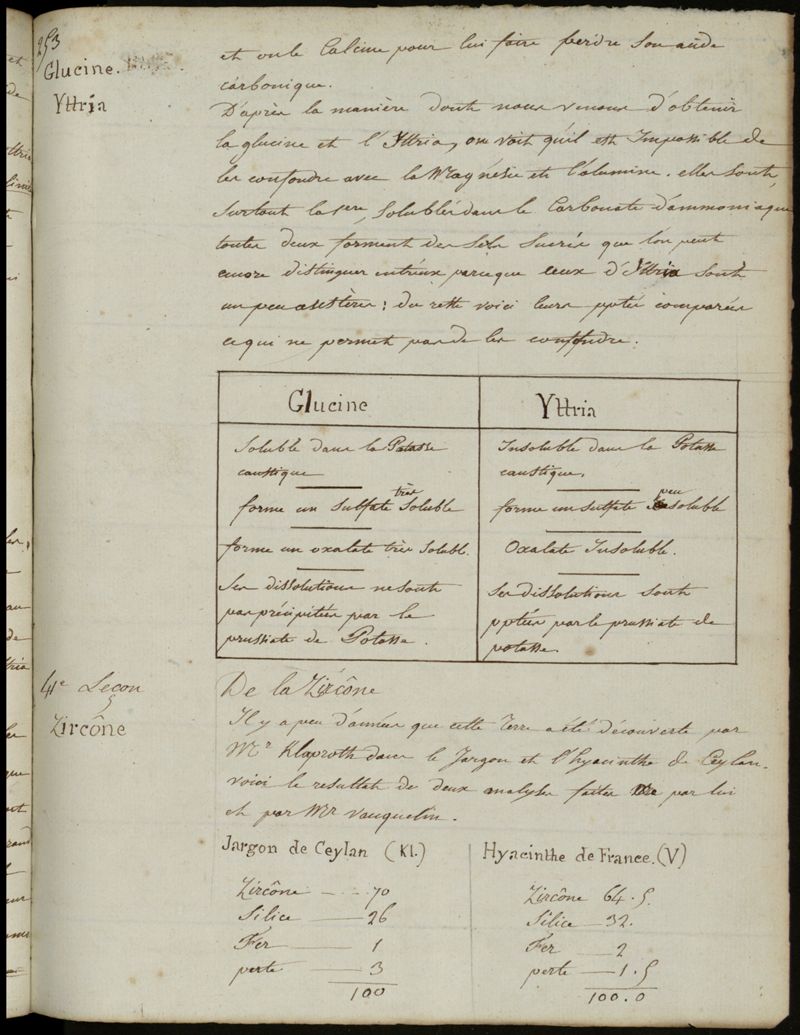 253
Glucine.
Yttria
et on le Calcine pour lui faire perdre son acide
carbonique.
D'après la manière dont nous venons d'obtenir
la glucine et l'Yttria, on voit qu'il est Impossible de
les confondre avec la Magnésie et l'alumine. elles sont,
surtout la 1ere, solubles dans le Carbonate d'ammoniaque
toutes deux forment des Sels Sucrés que l'on peut
encore distinguer entr'eux parceque ceux d'Yttria sont
un peu : du reste voici leurs pptés comparées
ce qui ne permet pas de les confondre.
Glucine
Soluble dans la Potasse
caustique
forme un sulfate très soluble
forme un oxalate très soluble.
Ses dissolutions ne sont
pas précipitées par le
prussiate de Potasse.
Yttria
Insoluble dans la Potasse
caustique.
forme un sulfate peu soluble
Oxalate Insoluble.
Ses dissolutions sont
pptées par le prussiate de
potasse.
41e Lecon
Zircône
De la Zircône
Il y a peu d'années que cette Terre a été découverte par
Mr Klaproth dans le Jargon et l'hyacinthe de Ceylan.
voici le resultat de deux analyses faites par lui
et par Mr Vauquelin.
Jargon de Ceylan (Kl.)
Zircône - - - 70
Silice — 26
Fer — 1
perte — 3
100
Hyacinthe de France. (V)
Zircône 64.5.
Silice — 32.
Fer — 2
perte — 1.5
100.0